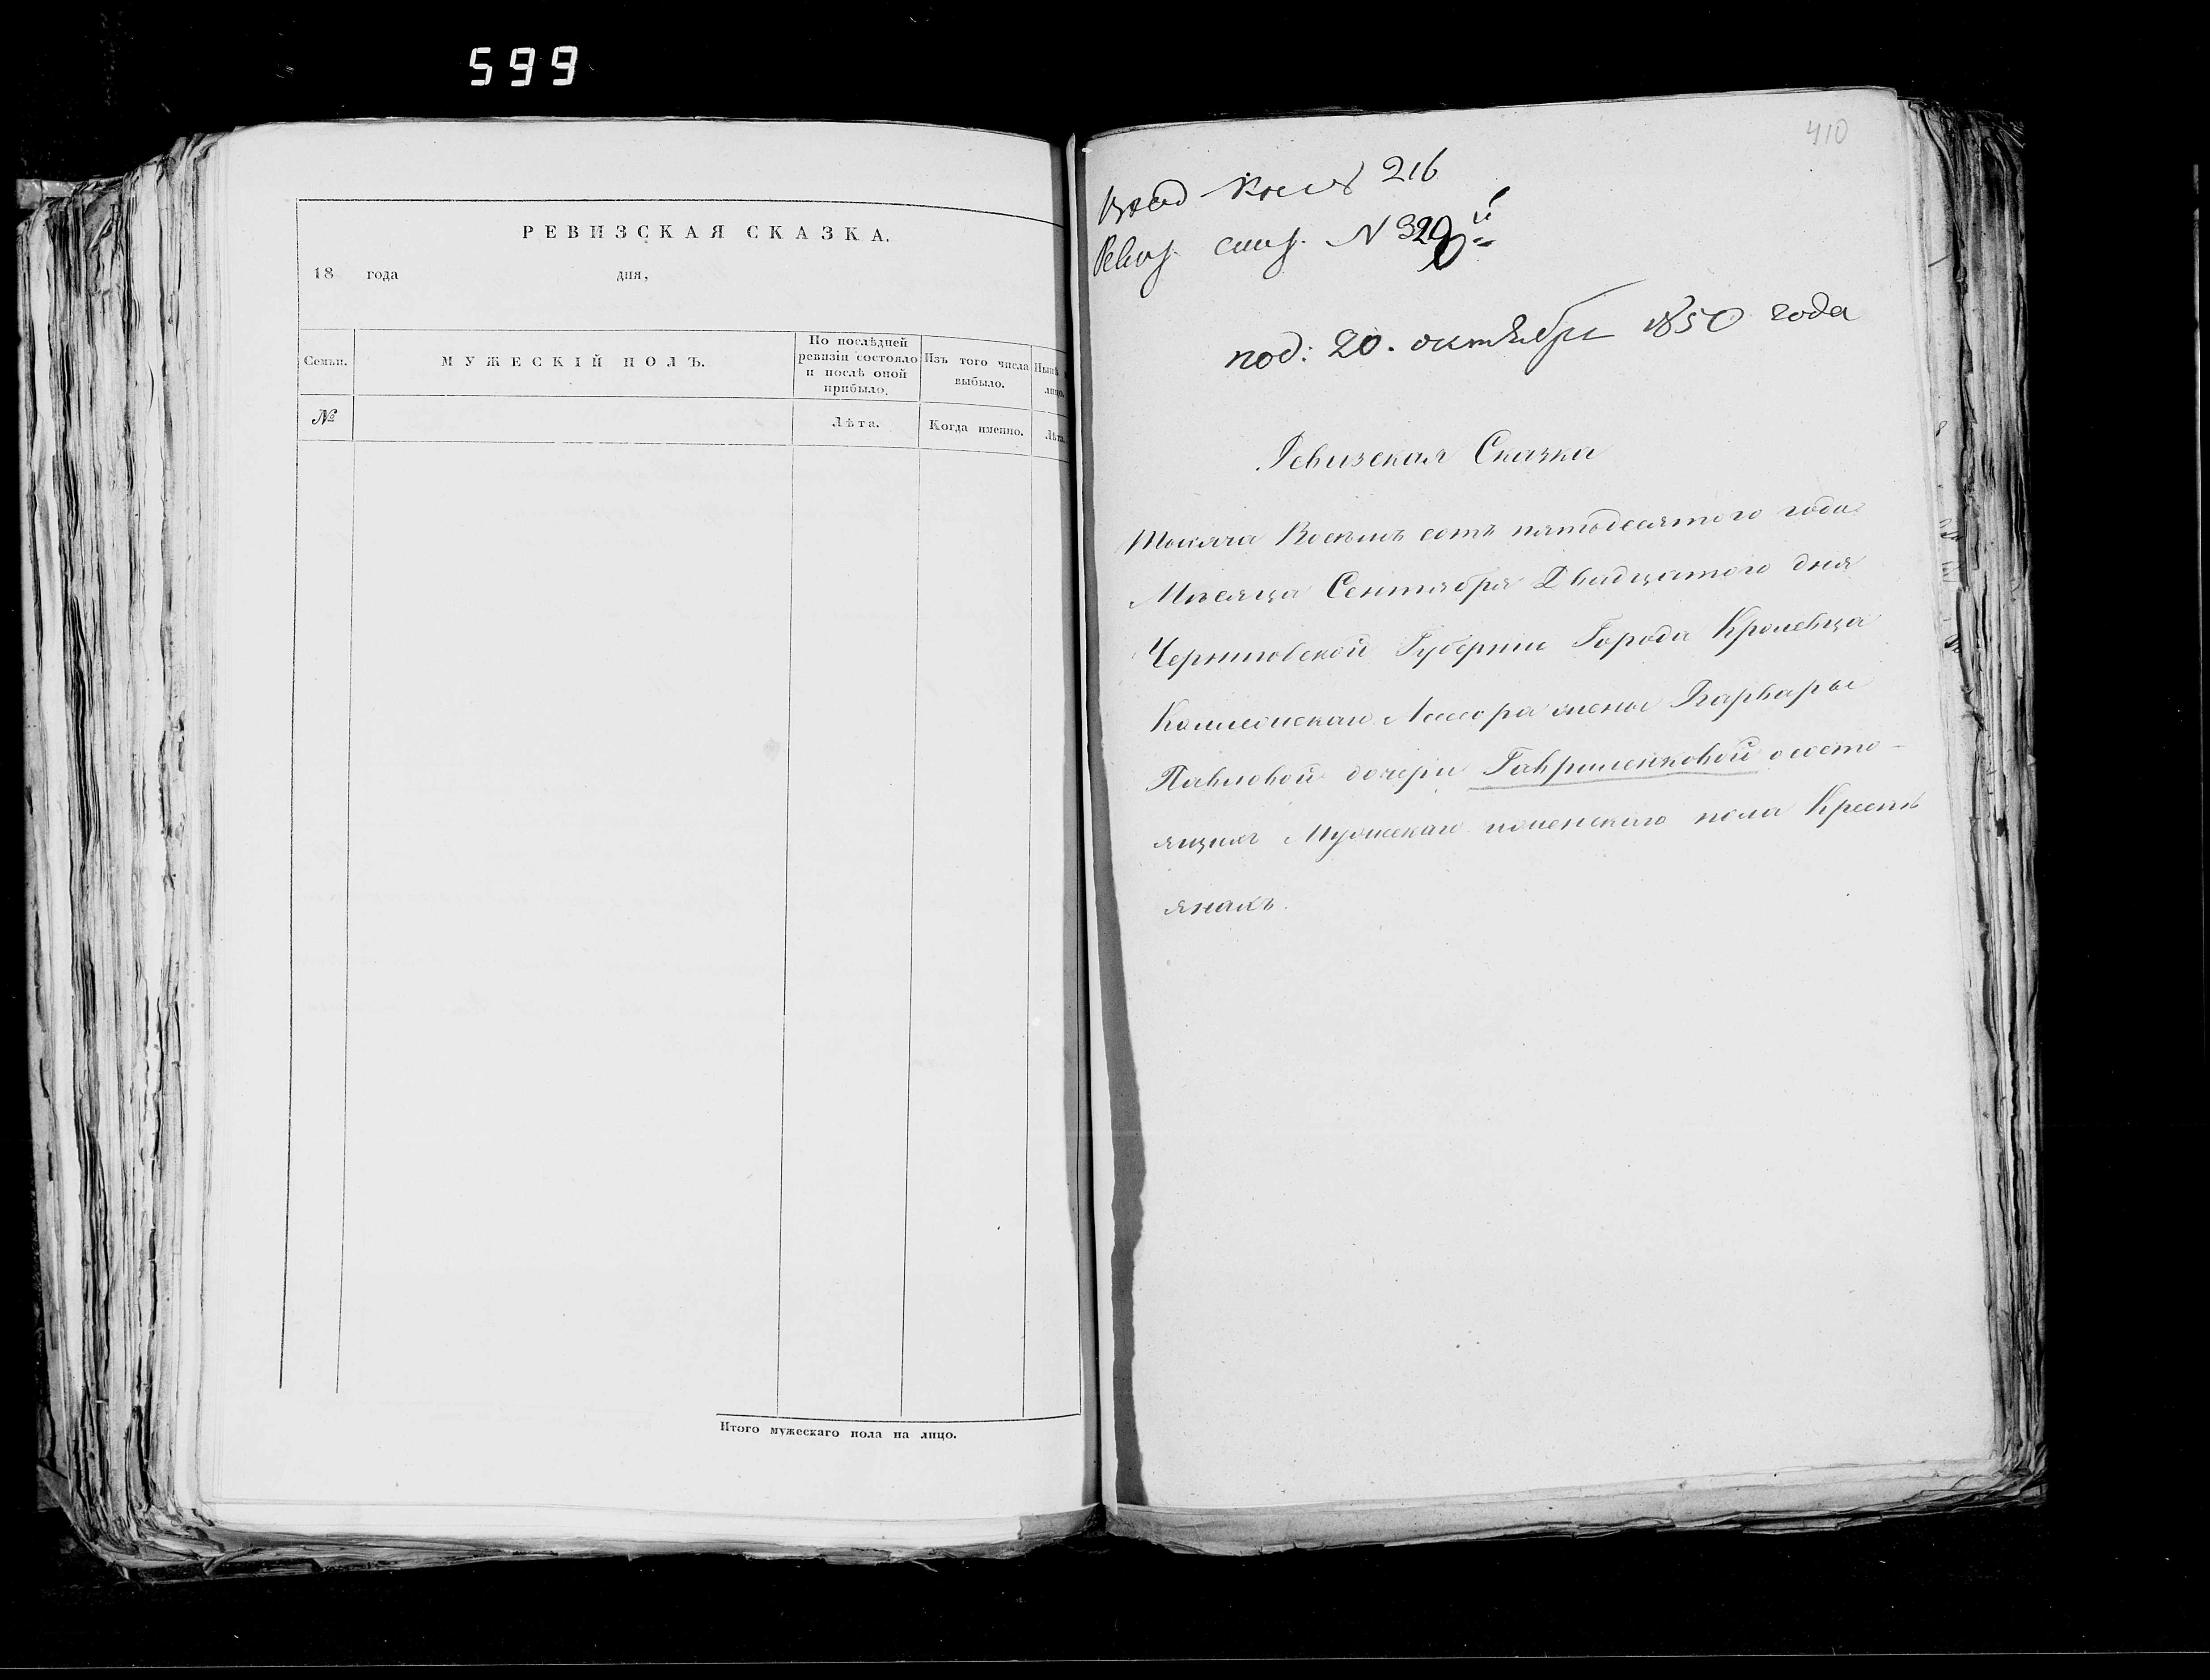 599
РЕВИЗСКАЯ СКАЗКА.
18 года дня,
Семьи.
МУЖЕСКІЙ ПОЛЪ.
По послѣдней
ревизіи состояло
и послѣ оной
прибыло.
Изъ того числа
выбыло.
Нынѣ
лицо.
№
Лѣта.
Когда именно.
Лѣта
Итого мужескаго пола на лицо.
410
216
Ревиз. N 329
под: 20. октября 1850 года
Ревизская Сказка
Тысяча Восемь сотъ пятьдесятого года
Мѣсяца Сентября Двадцатого дня
Черниговской Губерніи Города Кролевца
Коллежскаго Ассесора жены Варвары
Павловой дочери Гавриленковой о состо-
ящихъ Мужескаго и женскаго пола Кресть
янахъ.